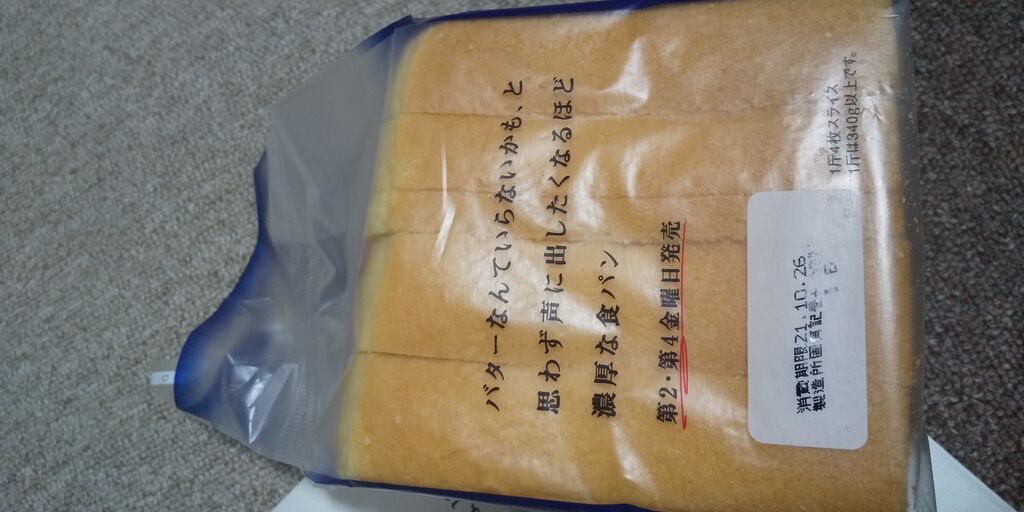 バターなんていらないかも、と
思わず声に出したくなるほど
濃厚な食パン
第2・第4金曜日発売
1斤4枚スライス
1斤は340g以上です。
消費期限21.10.26
製造所固有記号